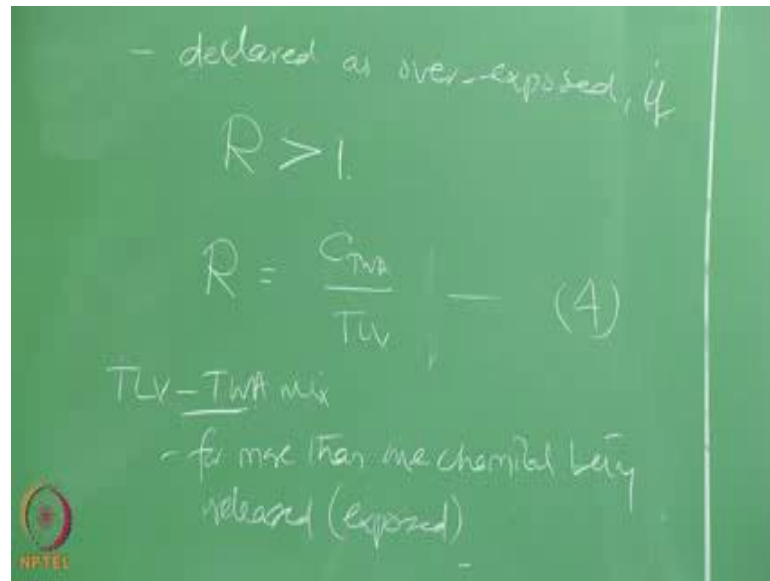 - declared as over-exposed, if
R > 1.
R = C_TWA / TLV — (4)
TLV - TWA mix
- for more than one chemical being
released (exposed)
NPTEL